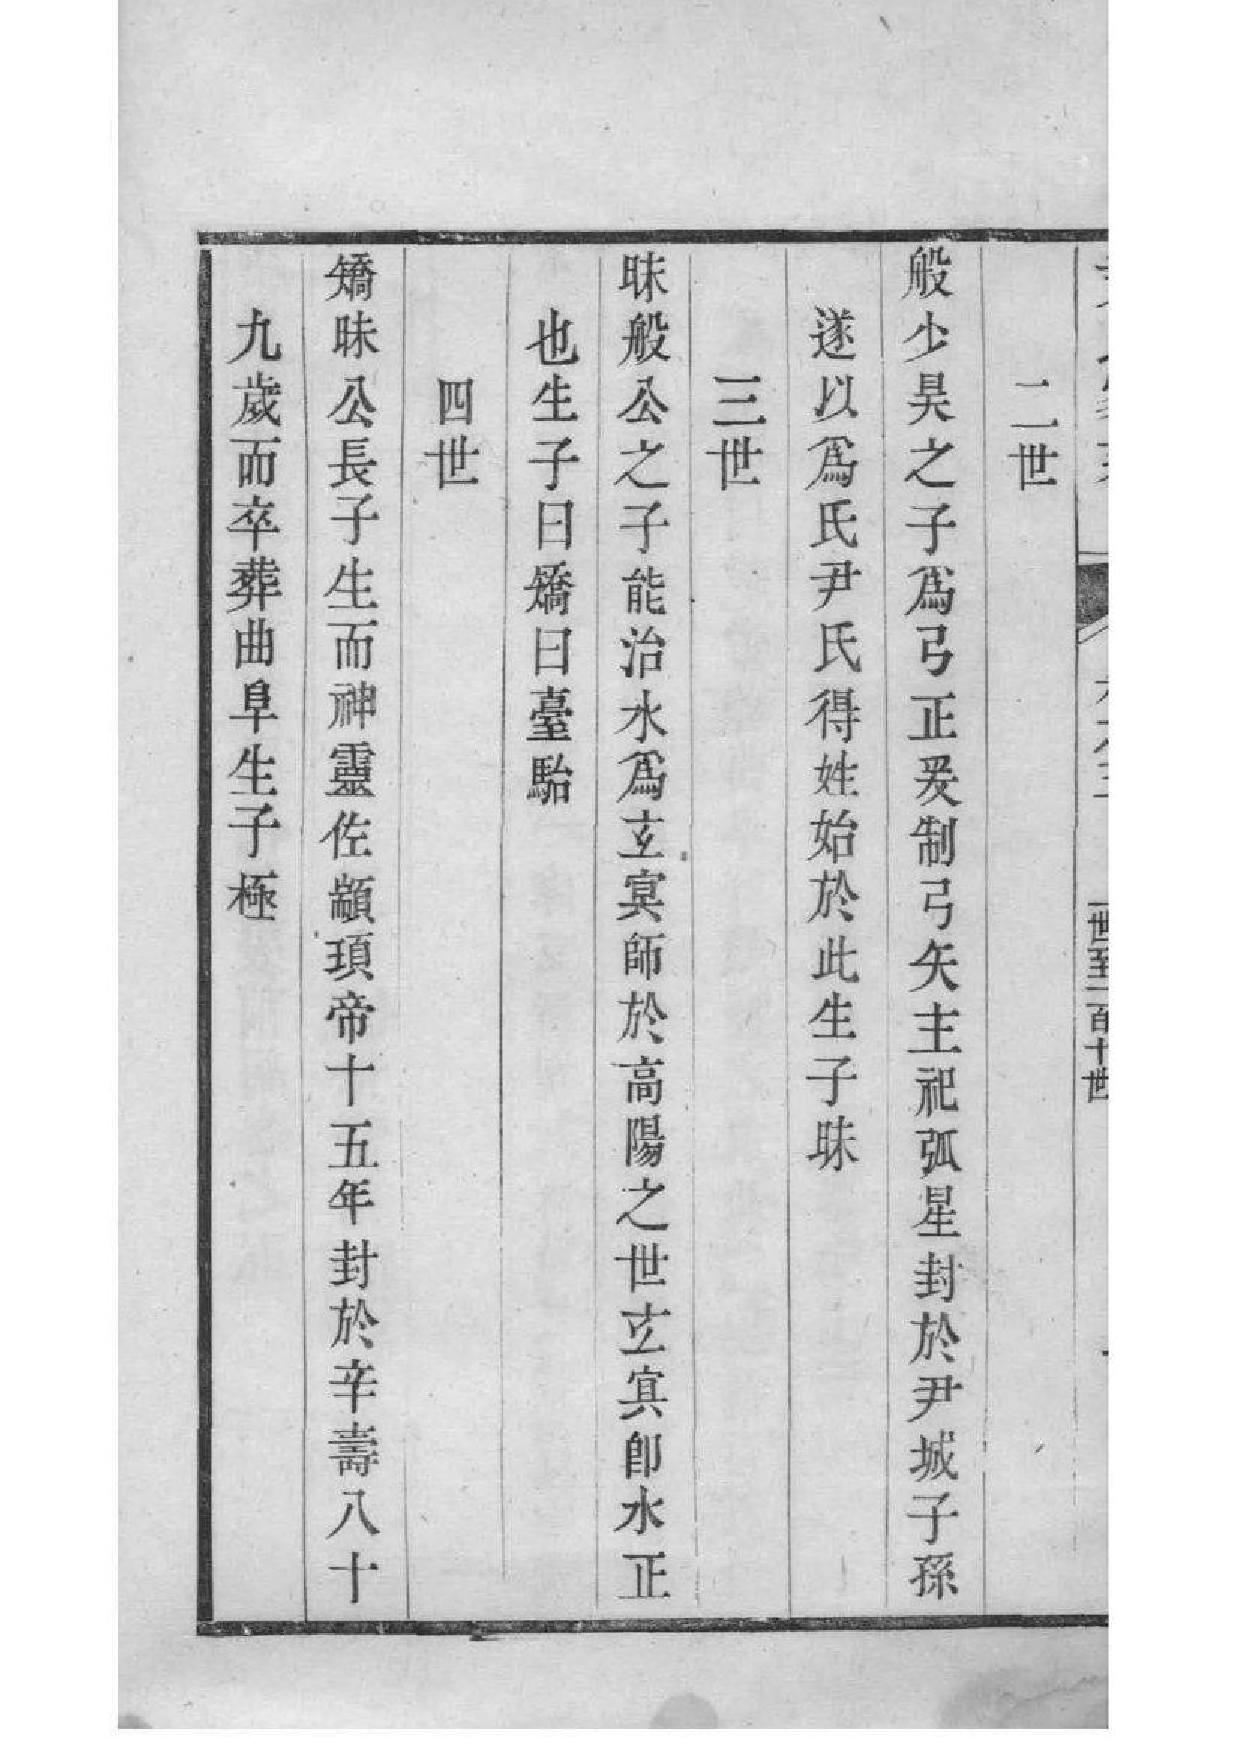 世至一百十世
二世
般少昊之子爲弓正爰制弓矢主祀弧星封於尹城子孫
遂以爲氏尹氏得姓始於此生子昧
三世
昧般公之子能治水爲玄冥師於高陽之世玄冥卽水正
也生子曰矯曰臺駘
四世
矯昧公長子生而神靈佐顓頊帝十五年封於辛壽八十
九歲而卒葬曲阜生子極